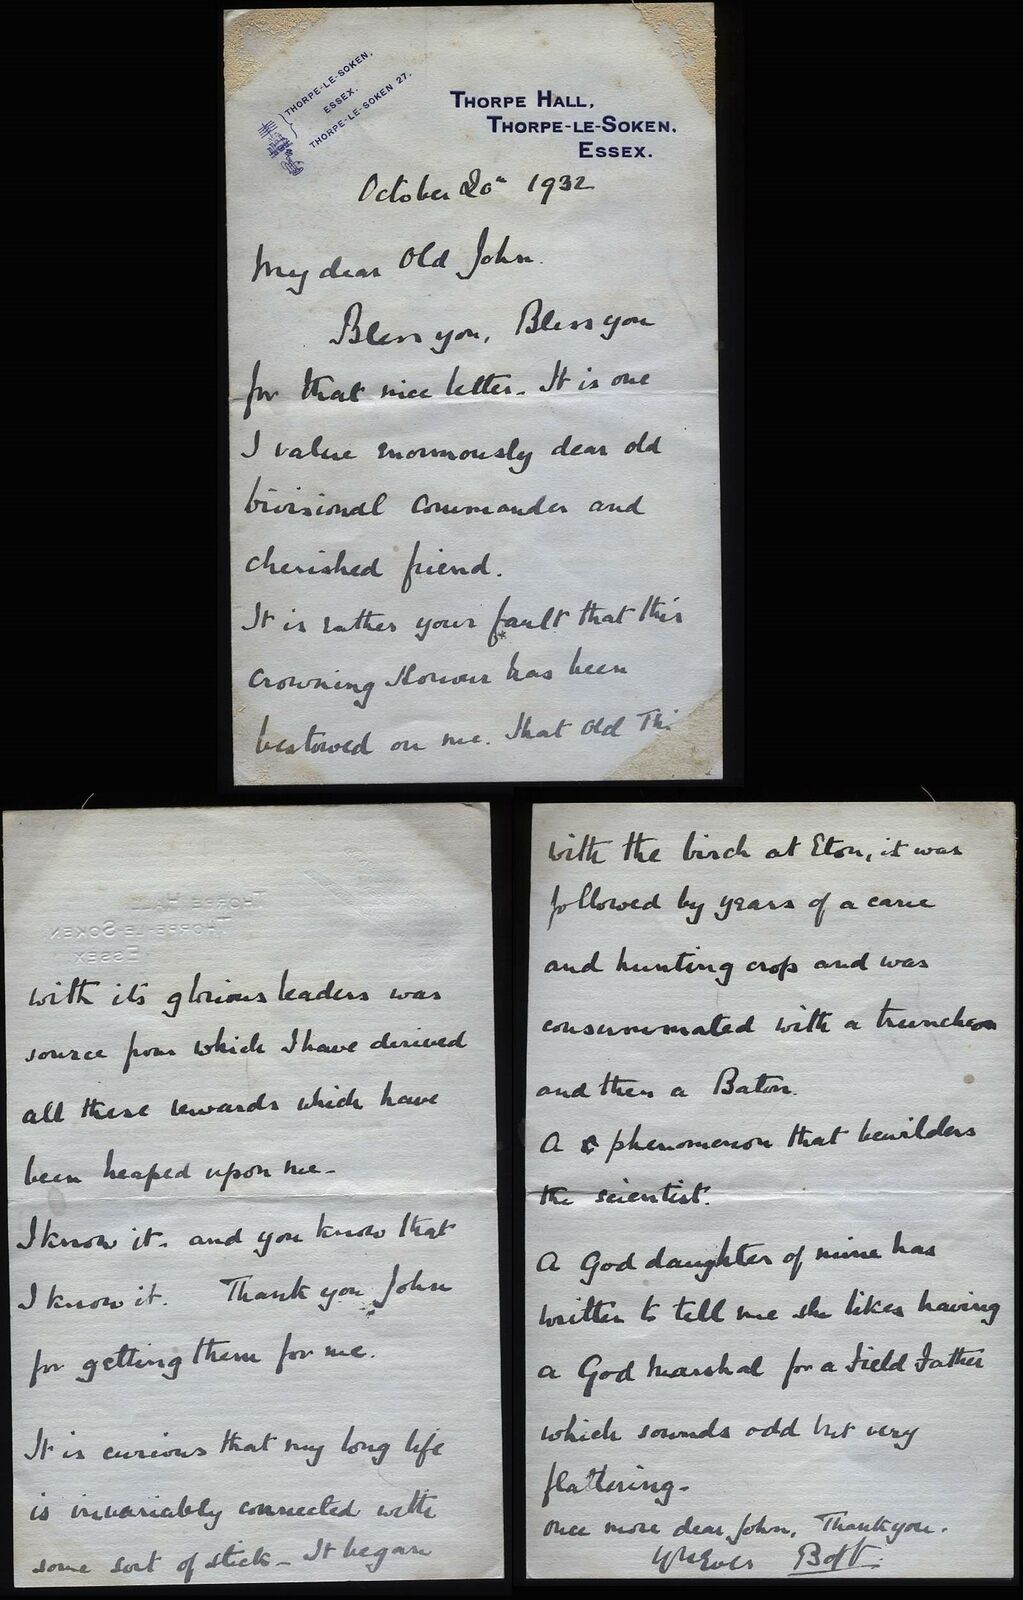 THORPE-LE-SOKEN,
ESSEX.
THORPE-LE-SOKEN 27.
THORPE HALL,
THORPE-LE-SOKEN,
ESSEX.
October 20th 1932
My dear Old John.
Bless you, Bless you
for that nice letter. It is one
I value enormously dear old
Divisional Commander and
cherished friend.
It is rather your fault that this
crowning Honour has been
bestowed on me. That Old
with its glorious leaders was
source from which I have derived
all these rewards which have
been heaped upon me.
I know it. and you know that
I know it. Thank you John
for getting them for me.
It is curious that my long life
is invariably connected with
some sort of stick - It began
with the birch at Eton, it was
followed by years of a cane
and hunting crop and was
consummated with a truncheon
and then a Baton.
A phenomenon that bewilders
the scientist.
A God daughter of mine has
written to tell me she likes having
a God Marshal for a Field Father
which sounds odd but very
flattering.
Once more dear John, Thank you.
Yrs Ever